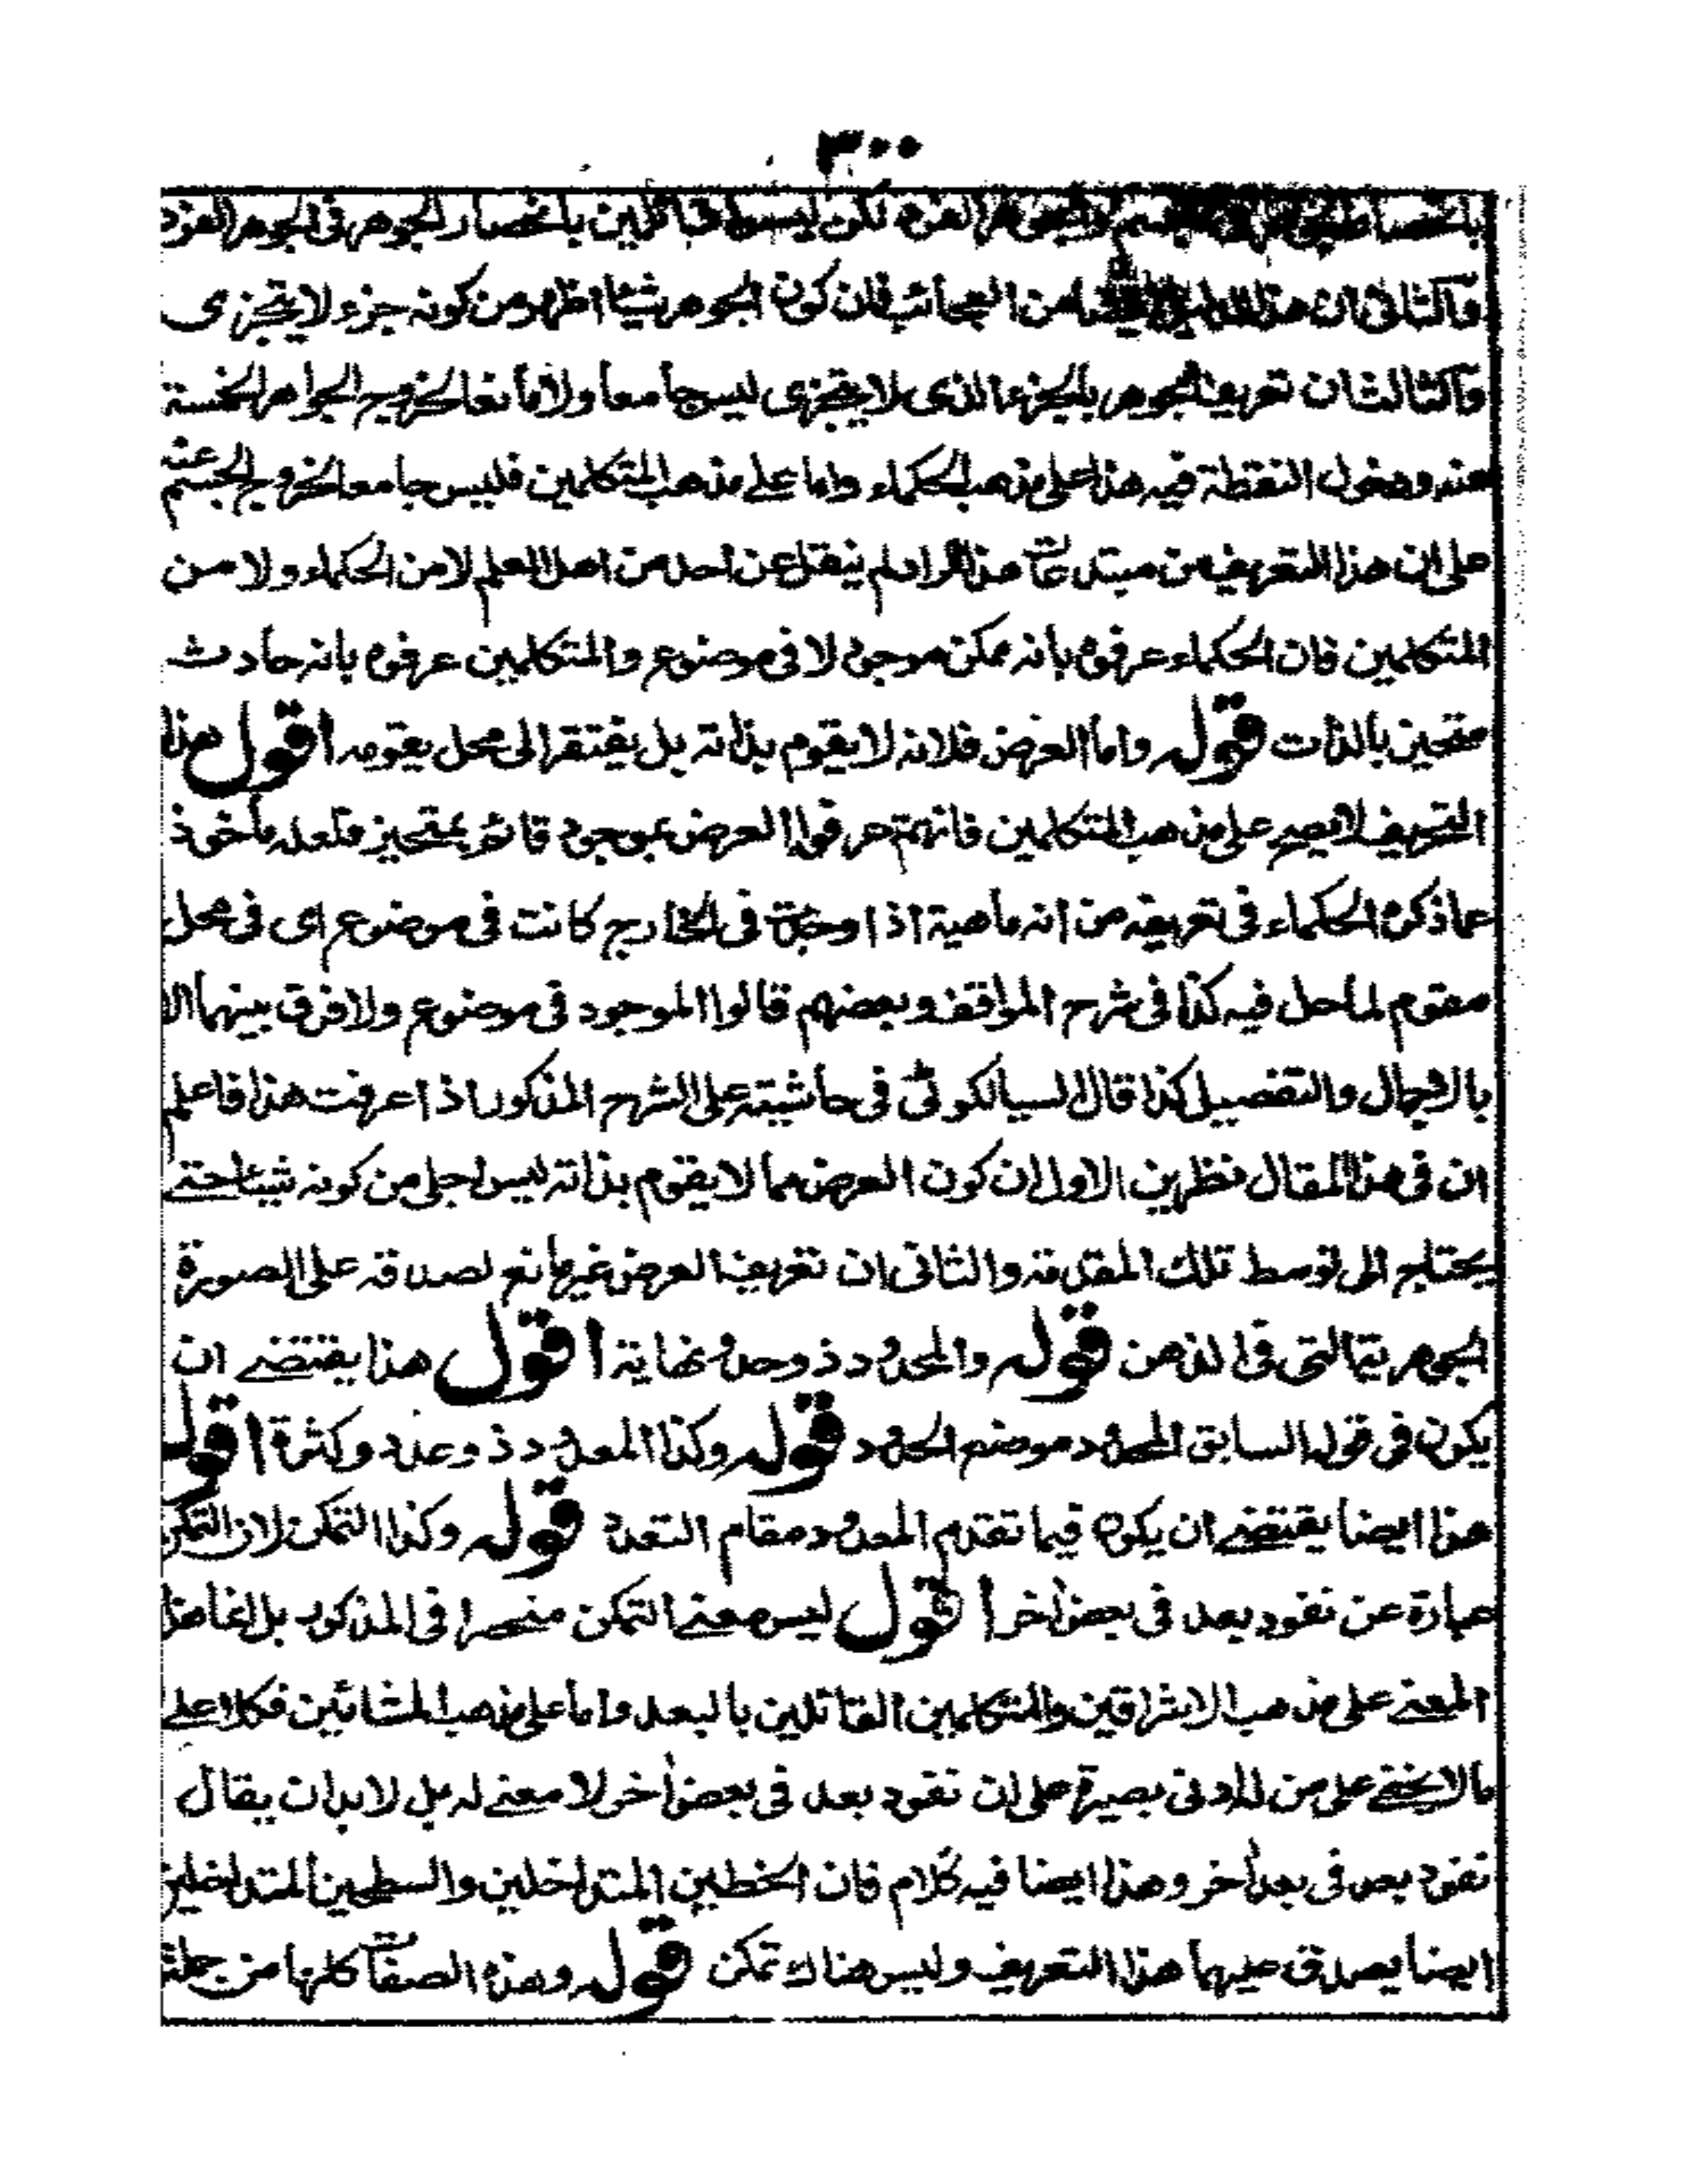 ٣٠٠
بانحصار الجوهر الفرد لكن ليسوا قائلين بانحصار الجوهر فى الجوهر الفرد
والثانى ان هذا من العجائب فان كون الجوهر شيئا اظهر من كونه جزء لا يتجزى
والثالث ان تعريف الجوهر بالجزء الذى لا يتجزى ليس جامعا ولا مانعا لخروج الجواهر الخمسة
عنه ودخول النقطة فيه هذا على مذهب الحكماء واما على مذهب المتكلمين فليس جامعا لخروج الجسم عنه
على ان هذا التعريف من مبتدعات هذا المراد لم ينقل عن احد من اهل العلم لا من الحكماء ولا من
المتكلمين فان الحكماء عرفوه بانه ممكن موجود لا فى موضوع والمتكلمين عرفوه بانه حادث
متحيز بالذات قوله واما العرض فلانه لا يقوم بذاته بل يفتقر الى محل يقومه اقول هذا
التعريف لا يصح على مذهب المتكلمين فانهم عرفوا العرض بموجود قائم بمتحيز ولعله مأخوذ
عما ذكره الحكماء فى تعريفه من انه ماهية اذا وجدت فى الخارج كانت فى موضوع اى فى محل
مقوم لما حل فيه كذا فى شرح المواقف وبعضهم قالوا الموجود فى موضوع ولا فرق بينهما الا
بالاجمال والتفصيل كذا قال السيالكوتى فى حاشيته على الشرح المذكور اذا عرفت هذا فاعلم
ان فى هذا المقال نظرين الاول ان كون العرض مما لا يقوم بذاته ليس اجلى من كونه شيئا حتى
يحتاج الى توسط تلك المقدمة والثانى ان تعريف العرض غير مانع لصدقه على الصورة
الجوهرية التى فى الذهن قوله والمحدود ذو حد ونهاية اقول هذا يقتضى ان
يكون فى قوله السابق المحدود موضع الحدود قوله وكذا المعدود ذو عدد وكثرة اقول
هذا ايضا يقتضى ان يكون فيما تقدم المعدود مقام التعدد قوله وكذا التمكن لان التمكن
عبارة عن نفود بعد فى بعض اخر اقول ليس معنى التمكن منحصرا فى المذكور بل انما هذا
المعنى على مذهب الاشراقين والمتكلمين القائلين بالبعد واما على مذهب المشائين فكلا على
ما لا يخفى على من له ادنى بصيرة على ان نفود بعد فى بعض اخر لا معنى له بل لا بد ان يقال
نفود بعد فى بعد اخر وهذا ايضا فيه كلام فان الخطين المتداخلين والسطحين المتداخلين
ايضا يصدق عليهما هذا التعريف وليس هناك تمكن قوله وهذه الصفات كلها من جملة